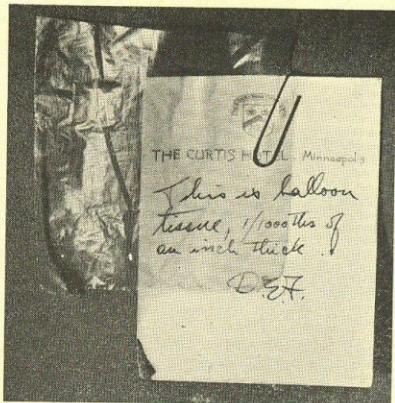 THE CURTIS HOTEL Minneapolis
This is balloon
tissue, 1/1000ths of
an inch thick.
D.E.F.